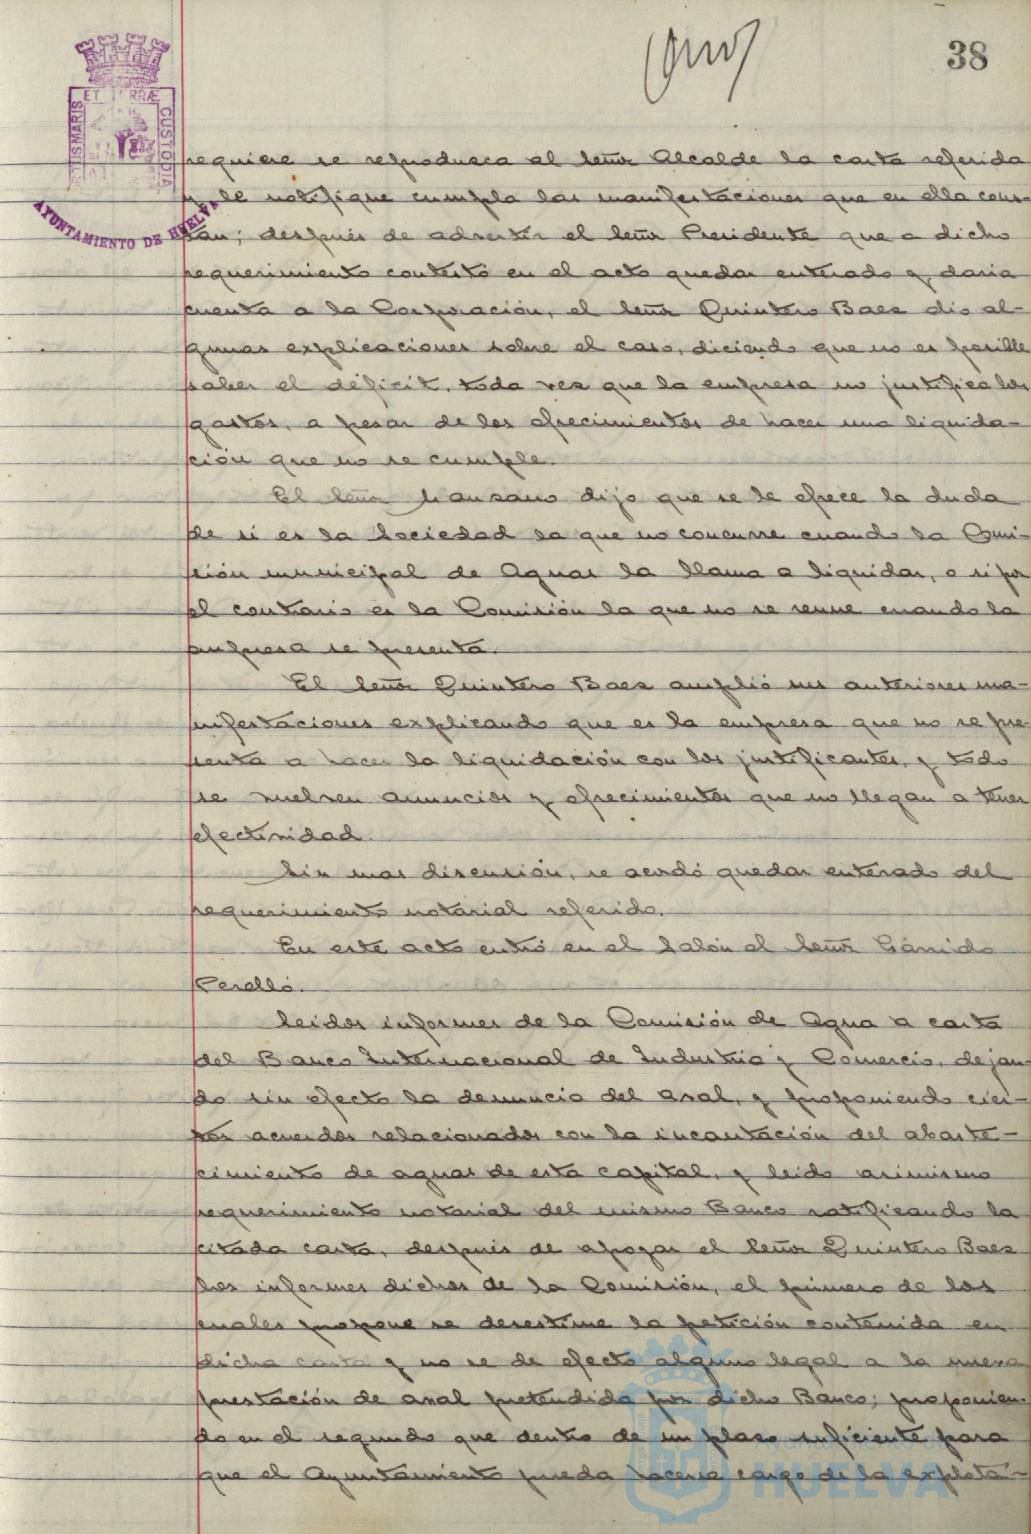 38
ET TERRÆ
US MARIS
CUSTODIA
AYUNTAMIENTO DE HUELVA
requiere se reproduzca al Señor Alcalde la carta referida
y le notifique cumpla las manifestaciones que en ella cons-
tan; después de advertir el Señor Presidente que a dicho
requerimiento contestó en el acto quedar enterado y daria
cuenta a la Corporación, el Señor Quintero Baez dio al-
gunas explicaciones sobre el caso, diciendo que no es posible
saber el déficit, toda vez que la empresa no justifica los
gastos, a pesar de los ofrecimientos de hacer una liquida-
ción que no se cumple.
El Señor Manzano dijo que se le ofrece la duda
de si es la Sociedad la que no concurre cuando la Comi-
sión municipal de Aguas la llama a liquidar, o si por
el contrario es la Comisión la que no se reune cuando la
empresa se presenta.
El Señor Quintero Baez amplió sus anteriores ma-
nifestaciones explicando que es la empresa que no se pre
senta a hacer la liquidación con los justificantes, y todo
se vuelven anuncios y ofrecimientos que no llegan a tener
efectividad.
Sin mas discusión, se acordó quedar enterado del
requerimiento notarial referido.
En este acto entró en el Salón el Señor Garrido
Perelló.
Leidos informes de la Comisión de Agua a carta
del Banco Internacional de Industria y Comercio, dejan-
do sin efecto la denuncia del aval, y proponiendo cier-
tos acuerdos relacionados con la incautación del abaste-
cimiento de aguas de esta capital, y leido asimismo
requerimiento notarial del mismo Banco ratificando la
citada carta, después de apoyar el Señor Quintero Baez
los informes dichos de la Comisión, el primero de los
cuales propone se desestime la petición contenida en
dicha carta y no se de efecto alguno legal a la nueva
prestación de aval pretendida por dicho Banco; proponien-
do en el segundo que dentro de un plazo suficiente para
que el Ayuntamiento pueda hacerse cargo de la explota-
HUELVA